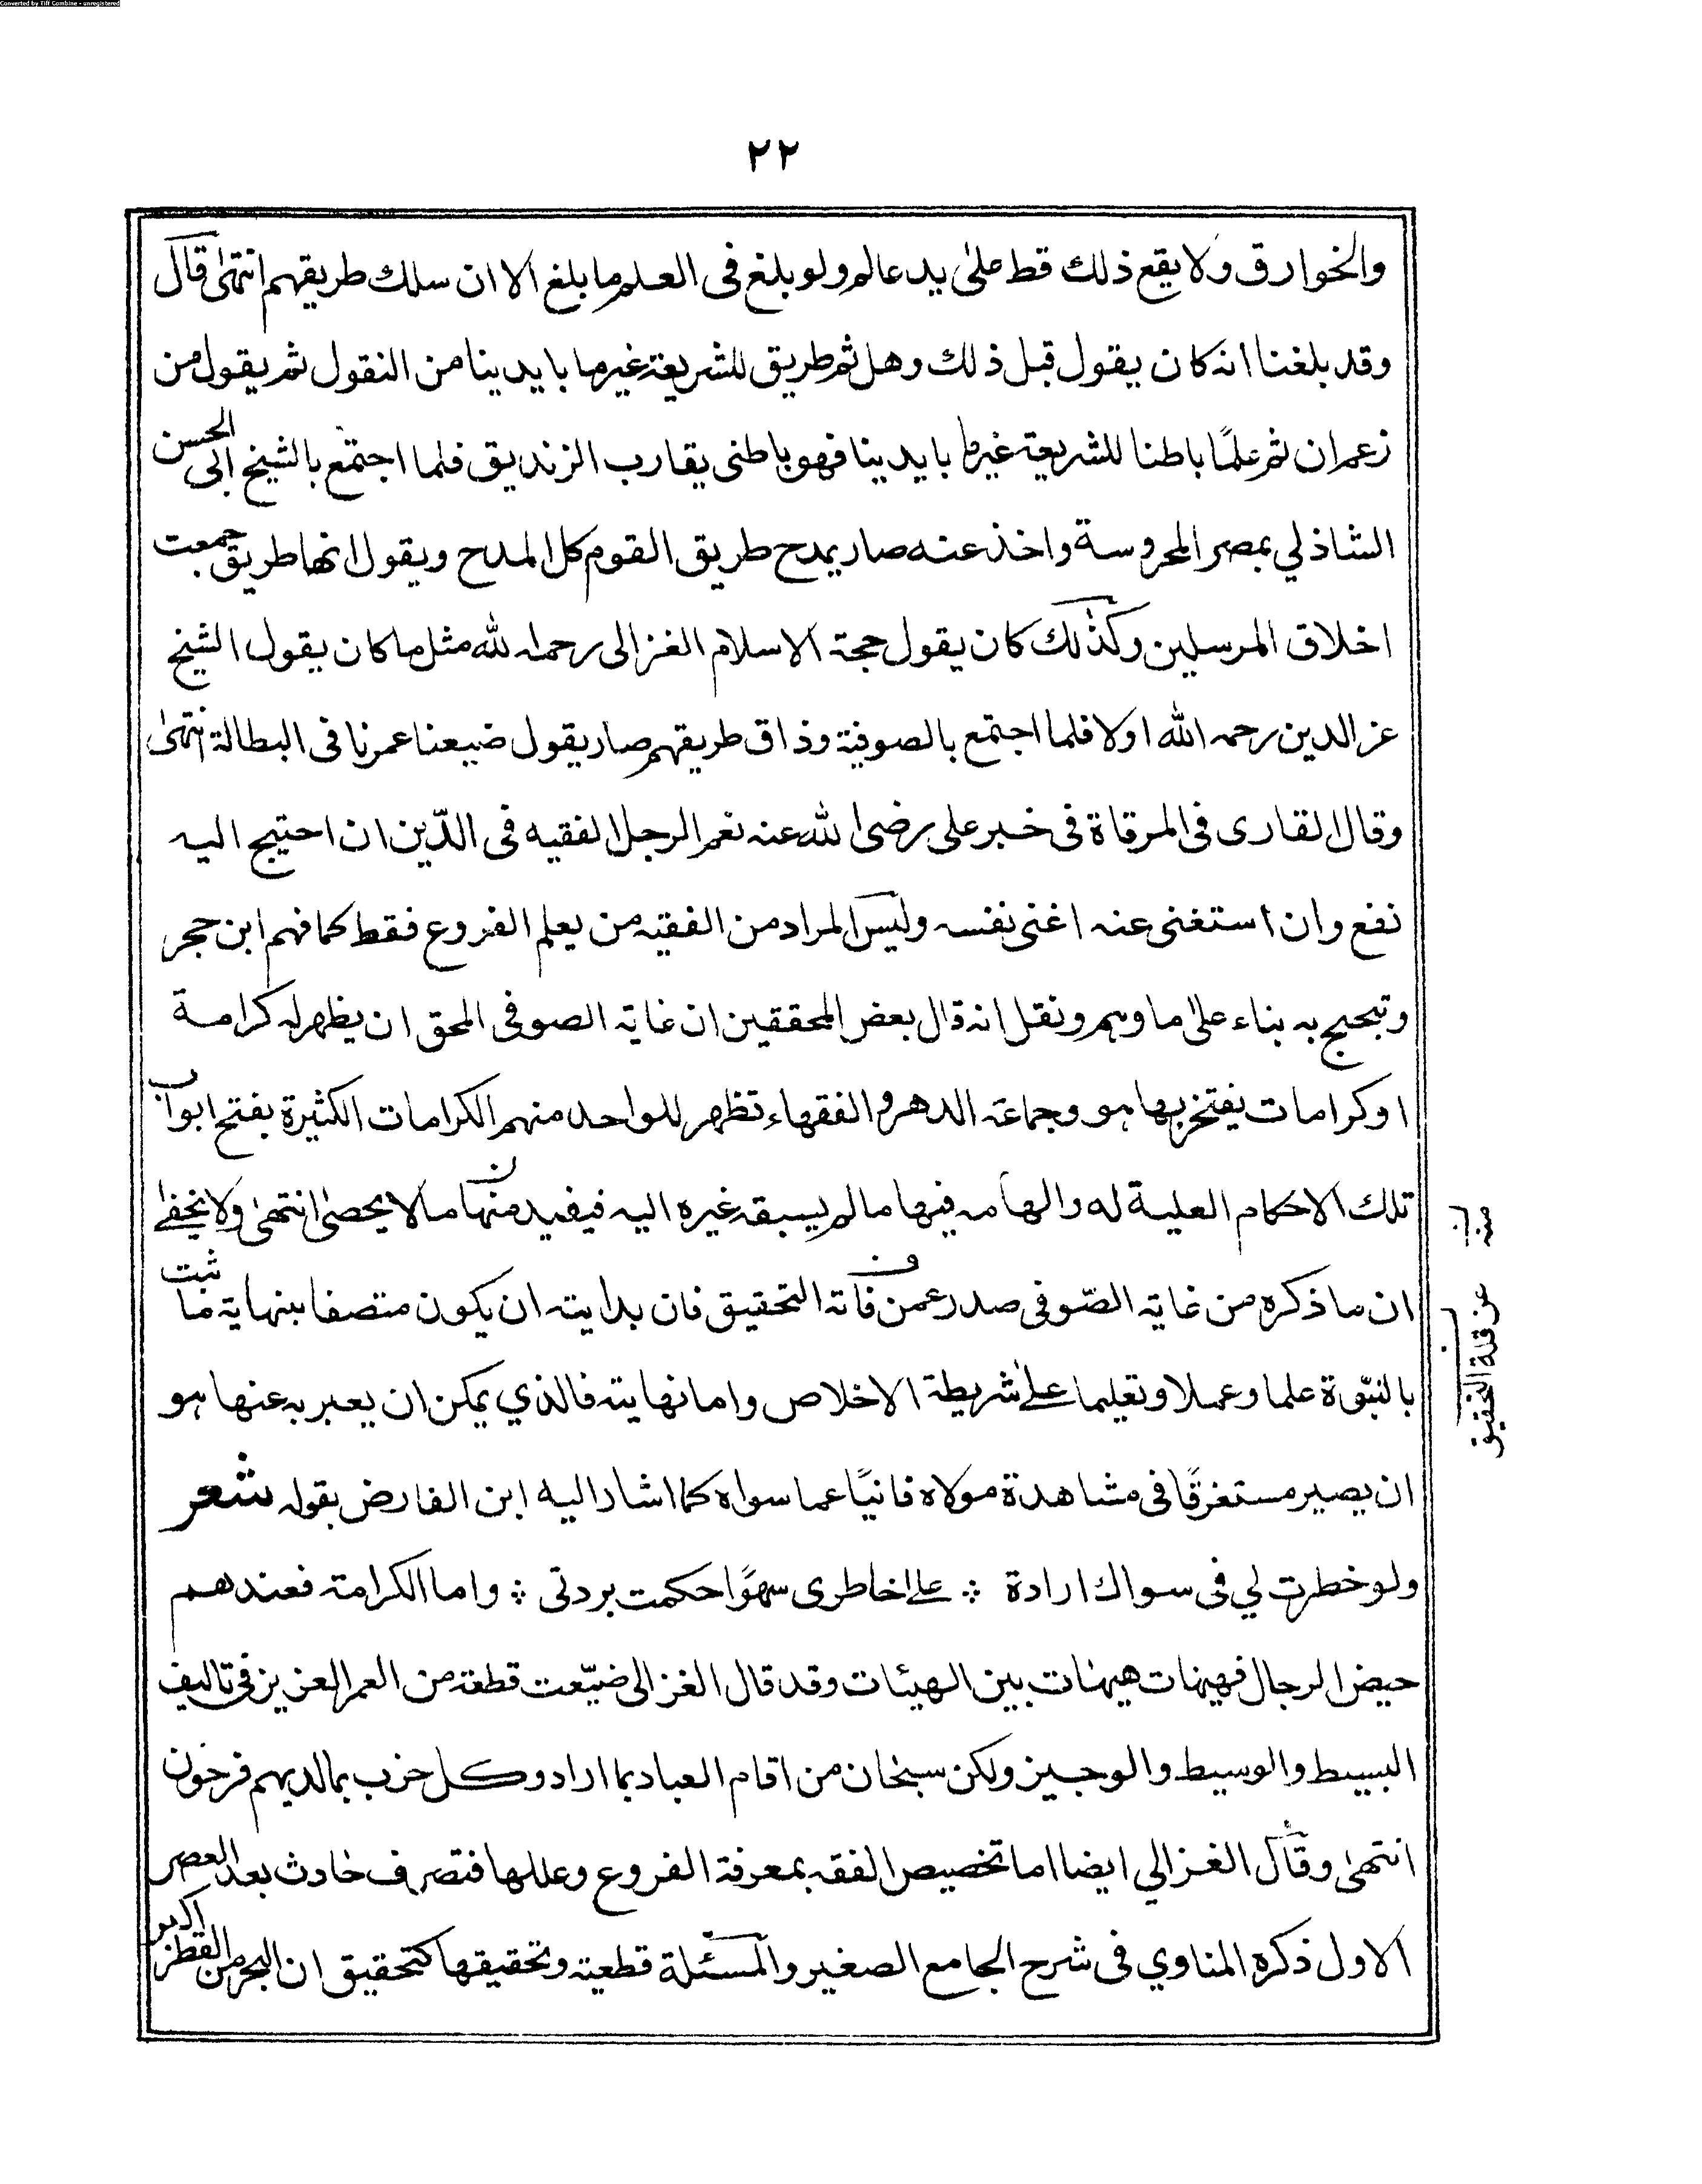 Converted by Tiff Combine - unregistered
٢٢
والخوارق ولا يقع ذلك قط على يد عالم ولو بلغ فى العلم ما بلغ الا ان سلك طريقهم انتهى قال
وقد بلغنا انه كان يقول قبل ذلك وهل ثم طريق للشريعة غير ما بايدينا من النقول ثم يقول من
زعم ان ثم علمًا باطنا للشريعة غير ما بايدينا فهو باطنى يقارب الزنديق فلما اجتمع بالشيخ ابى الحسن
الشاذلي بمصر المحروسة واخذ عنه صار يمدح طريق القوم كل المدح ويقول انها طريق جمعت
اخلاق المرسلين وكذلك كان يقول حجة الاسلام الغزالى رحمه الله مثل ما كان يقول الشيخ
عز الدين رحمه الله اولا فلما اجتمع بالصوفية وذاق طريقهم صار يقول ضيعنا عمرنا فى البطالة انتهى
وقال القارى فى المرقاة فى خبر على رضى الله عنه نعم الرجل الفقيه فى الدّين ان احتيج اليه
نفع وان استغنى عنه اغنى نفسه وليس المراد من الفقيه من يعلم الفروع فقط كما فهم ابن حجر
وتبجح به بناء على ما وهم ونقل انه قال بعض المحققين ان غاية الصوفى المحق ان يظهر له كرامة
او كرامات يفتخر بها هو وجماعة الدهر والفقهاء تظهر للواحد منهم الكرامات الكثيرة بفتح ابواب
تلك الاحكام العلية له والهامه فيها ما لم يسبقه غيره اليه فيفيد منها ما لا يحصى انتهى ولا يخفى
ان ما ذكره من غاية الصّوفى صدر عمن فاته التحقيق فان بدايته ان يكون متصفا بنهاية ما ثبت
بالنبّوة علما وعملا وتعليما على شريطة الاخلاص واما نهايته فالذي يمكن ان يعبر به عنها هو
ان يصير مستغرقًا فى مشاهدة مولاه فانيًا عما سواه كما اشار اليه ابن الفارض بقوله شعر
ولو خطرت لي فى سواك ارادة ؞ على خاطرى سهوًا حكمت بردتى ؞ واما الكرامة فعندهم
حيض الرجال فهيهات هيهات بين الهيئات وقد قال الغزالى ضيّعت قطعة من العمر العزيز فى تاليف
البسيط والوسيط والوجيز ولكن سبحان من اقام العباد بما اراد وكل حزب بما لديهم فرحون
انتهى وقال الغزالي ايضا اما تخصيص الفقه بمعرفة الفروع وعللها فتصرف حادث بعد العصر
الاول ذكره المناوي فى شرح الجامع الصغير والمسئلة قطعية وتحقيقها كتحقيق ان البحر من القطر اكبر
عن قلة التحقيق
منه